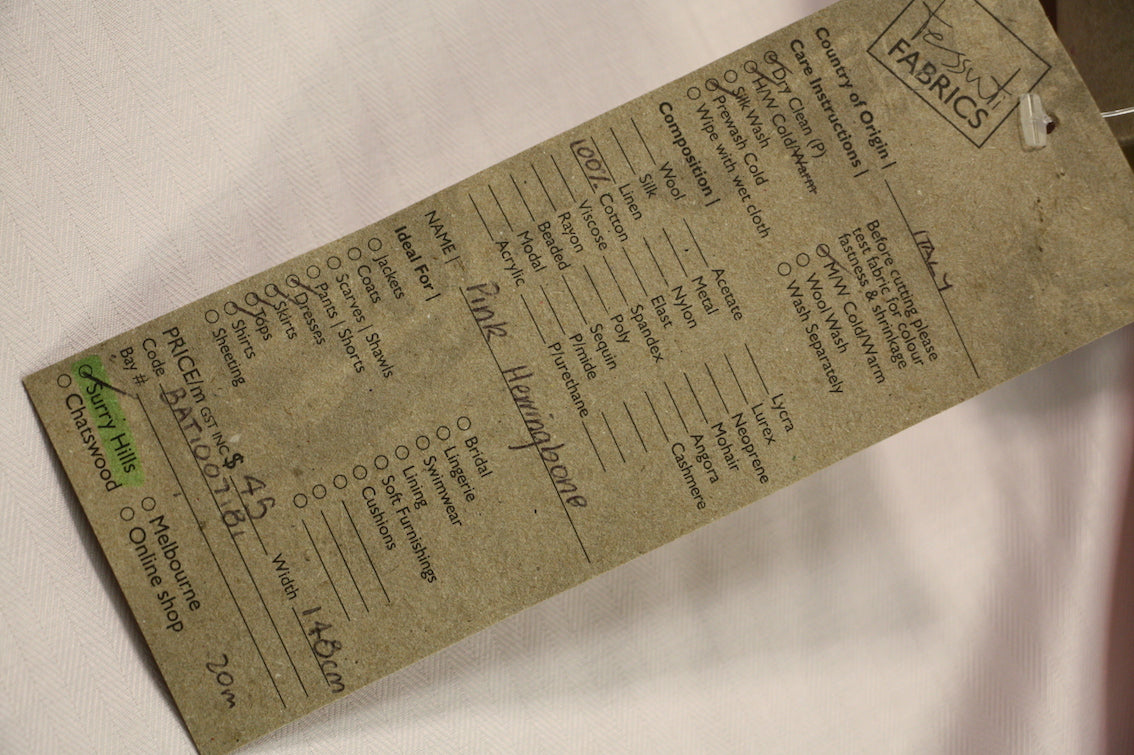 tessuti
FABRICS
Country of Origin | ITALY
Care Instructions |
Dry Clean (P)
H/W Cold/Warm
Silk Wash
Prewash Cold
Wipe with wet cloth
Before cutting please
test fabric for colour
fastness & shrinkage
M/W Cold/Warm
Wool Wash
Wash Separately
Composition |
Wool
Silk
Linen
100% Cotton
Viscose
Rayon
Beaded
Modal
Acrylic
Acetate
Metal
Nylon
Elast
Spandex
Poly
Sequin
P/mide
P/urethane
Lycra
Lurex
Neoprene
Mohair
Angora
Cashmere
NAME | Pink Herringbone
Ideal For |
Jackets
Coats
Scarves | Shawls
Pants | Shorts
Dresses
Skirts
Tops
Shirts
Sheeting
Bridal
Lingerie
Swimwear
Lining
Soft Furnishings
Cushions
PRICE/m GST INC $ 45 Width 148cm
Code BAT1007181
Bay #
Surry Hills
Chatswood
Melbourne
Online shop
20m